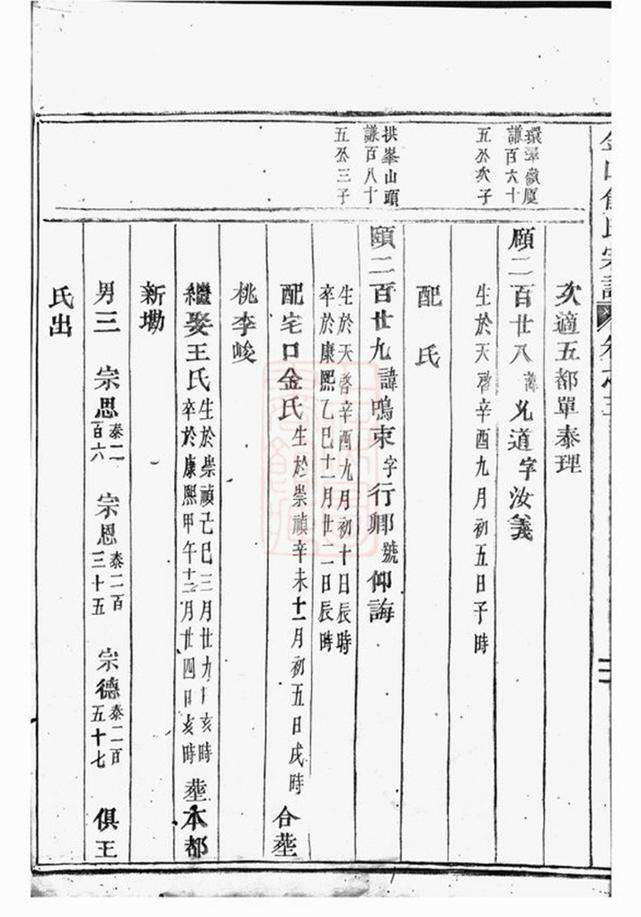 次適五都單泰理
謙百六十
五公次子
願二百廿八諱允道字汝義
生於天啓辛酉九月初五日子時
配氏
拱峯山頭
謙百八十
五公三子
願二百廿九諱鳴東字行卿號仰誨
生於天啓辛酉九月初十日辰時
卒於康熙乙巳十一月廿二日辰時
配宅口金氏生於崇禎辛未十一月初五日戌時 合塟
桃李峻
繼娶王氏生於崇禎己巳三月廿九日亥時
卒於康熙甲午十二月廿四日亥時 塟本都
新塘
男三 宗思泰二百六 宗恩泰二百三十五 宗德泰二百五十七 俱王
氏出